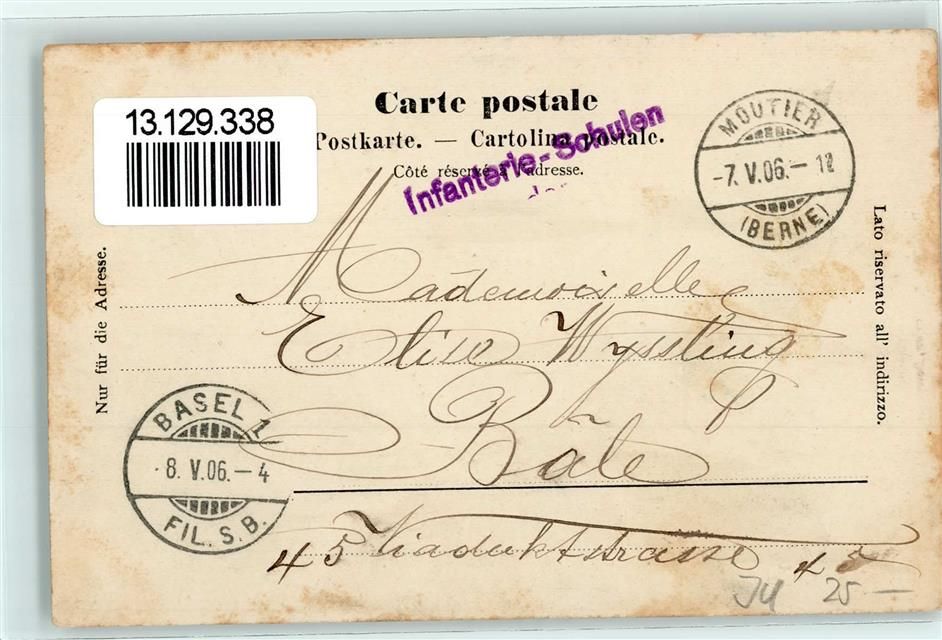 13.129.338
Carte postale
Postkarte. — Cartolina postale.
Côté réservé à l'adresse.
Infanterie-Schulen
MOUTIER
-7. V.06.- 12
(BERNE)
Nur für die Adresse.
Lato riservato all' indirizzo.
Mademoiselle
Elise Wyssling
Bâle
BASEL 1
8. V.06.-4
FIL. S. B.
45 Viaduktstrasse 45
25 —